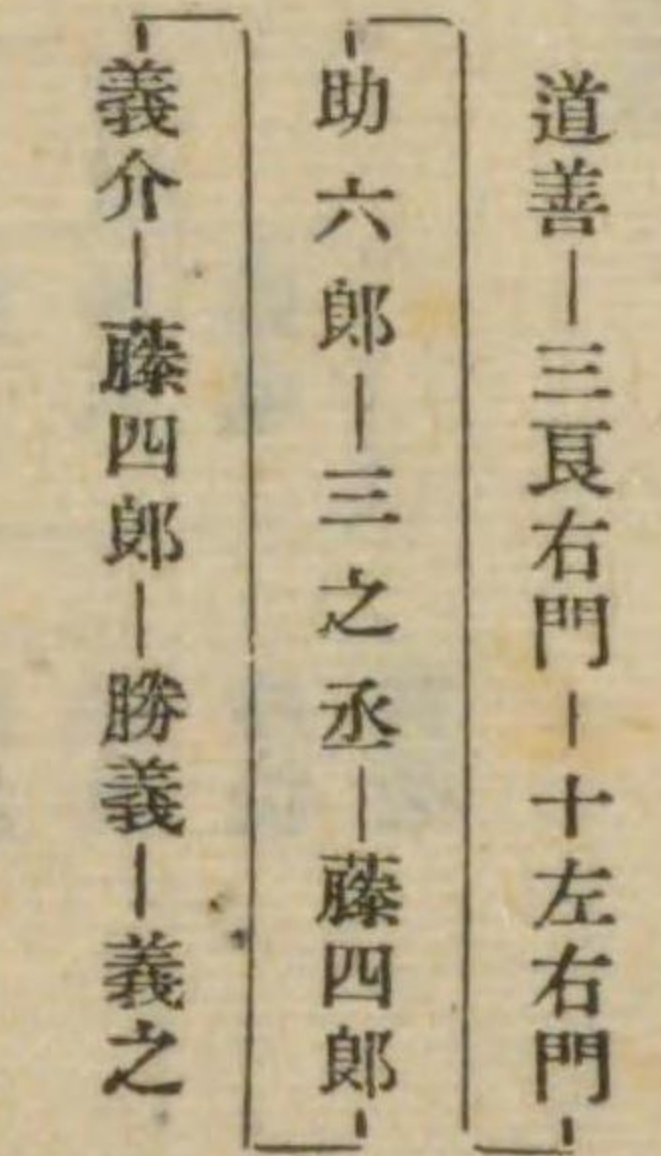 道善―三㫪右門―十左右門
助六郎―三之丞―藤四郎
義介―藤四郎―勝義―義之